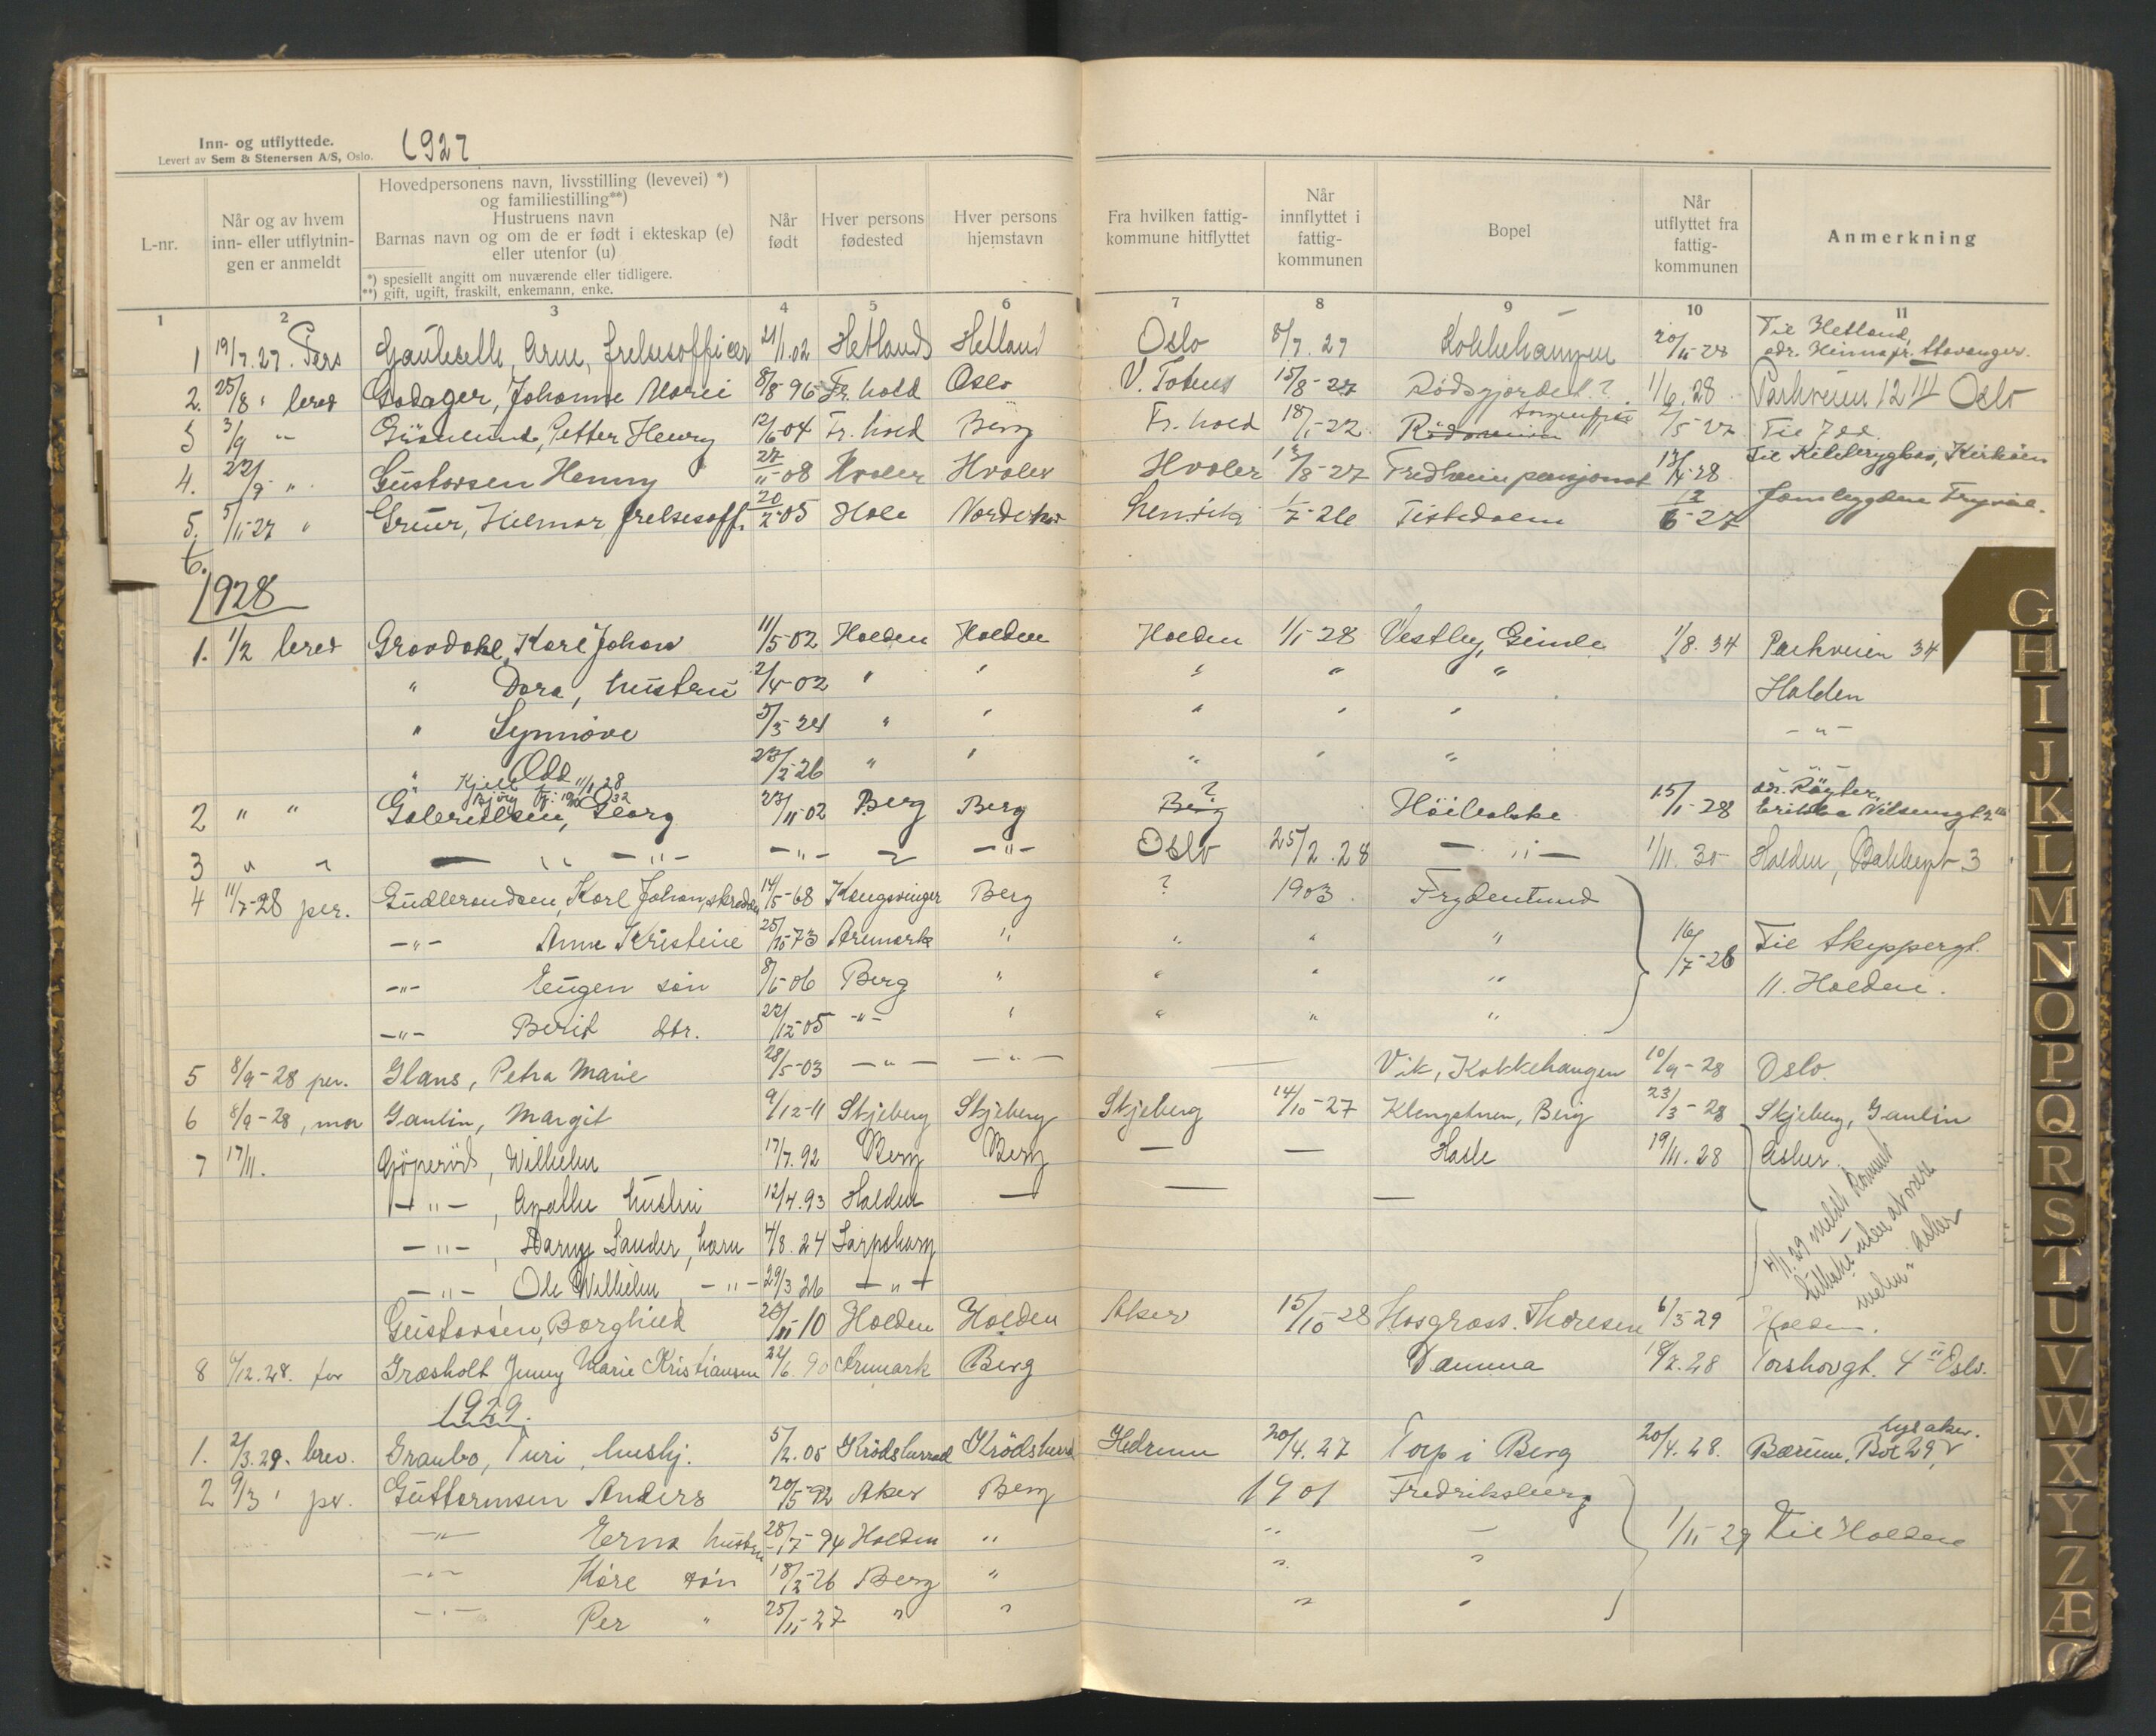 Inn- og utflyttede. 1927
Levert av Sem & Stenersen A/S, Oslo.
L-nr.
Når og av hvem inn- eller utflytnin- gen er anmeldt
Hovedpersonens navn, livsstilling (levevei) *)
og familiestilling**)
Hustruens navn
Barnas navn og om de er født i ekteskap (e)
eller utenfor (u)
*) spesiellt angitt om nuværende eller tidligere.
**) gift, ugift, fraskilt, enkemann, enke.
Når født
Hver persons fødested
Hver persons hjemstavn
Fra hvilken fattig- kommune hitflyttet
Når innflyttet i fattig- kommunen
Bopel
Når utflyttet fra fattig- kommunen
Anmerkning
1 2 3 4 5 6 7 8 9 10 11
1 19/7.27. Pers Arne, frelsesofficer 21/1.02 Hetland Hetland Oslo 8/7.27 Kokkehaugen 20/11-28 Til Hetland, adr. Hinna pr. Stavanger.
2. 25/8 " brev Godager, Johanne Marie 8/8 96 Fr. hald Oslo V. Toten 15/8-27 Rödsgjordet? 1/6.28 Parkveien 12 III Oslo
3 3/9 " Grönlund, Petter Henry 12/6-04 Fr. hald Berg Fr. hald 18/1-22 2/5-27 Til
4. 22/9 " Gustavsen Henny 27/11-08 Hvaler Hvaler Hvaler 12/8-27 Fredheim pensjonat 13/4-28 Til Kirköen
5. 5/11-27 " Gruer, Hilmar frelsesoff. 20/2-05 Hole Norderhov 1/7-26 Tistedalen 12/6-27
6.
1928
1. 1/2 brev Gravdahl, Karl Johan 11/5 02 Halden Halden Halden 1/1-28 Vestby, Gimle 1/8.34 Parkveien 34
" Dora, hustru 2/4-02 " " " " " Halden
" Synnöve 5/3-24 " " " " " - " -
" Odd 23/2-26 " " " " "
Kjell f. 11/1 28
2 " " Georg 27/11-02 Berg Berg Berg ? Höibakke 15/1-28
3 " " - " - - " - " - " - Oslo 25/2.28 - " - 1/11.30 Halden, 3
4 11/7-28 per. Gudbrandsen, Karl Johan, skredder 14/5-68 Kongsvinger Berg ? 1903. Frydenlund
- " - Anna Kristine 25/10-73 Aremark " " " " 16/7-28 Til Skippergt.
- " - Eugen sön 8/6-06 Berg " " " " 11. Halden.
- " - Berit dtr. 22/12-05 - " - " " " "
5 8/9-28 per. Glans, Petra Marie 28/5-03 - " - - " - — Vik, Kokkehaugen 10/9-28 Oslo.
6 8/9-28, mor Gaulin, Margit 9/12-11 Skjeberg Skjeberg Skjeberg 14/10-27 Berg 23/3-28 Skjeberg, Gaulin
7 17/11. Gjöperöd, Wilhelm 17/7.92 Berg Berg — — Hasle 19/11.28 Asker
- " -, hustru 12/4.93 Halden — — —
- " -, Sander, barn 4/8.24 Sarpsborg
- " - Ole Wilhelm - " - 29/3 26 - " -
4/11.29 meldt kommet tilbake uten at være meldt i Asker
Gustavsen, Borghild 20/11 10 Halden Halden Aker 15/10-28 Hos gross. Thoresen 6/3 29 Halden.
8 6/12.28. far Græsholt Jenny Marie Kristiansen 22/6 90 Aremark Berg Damma 18/2.28 Torshovgt. 4 II Oslo.
1929.
1. 2/3.29. brev. Granbo, Turi, hushj. 5/2.05 Krödsherred Krödsherred Hedrum 20/4.27 Torp i Berg 20/4.28. Bærum, Box 29, Lysaker.
2 9/3 " per. Guttormsen Anders 20/5-92 Aker Berg 1901 Fredriksberg
- " - Erna hustru 28/7-94 Halden " " - 1/11-29 Til Halden
- " - Kåre sön 18/2-26 Berg " " "
- " - Per " 25/11-27 " " " "
G
H
I
J
K
L
M
N
O
P
Q
R
S
T
U
V
W
X
Y
Z
Æ